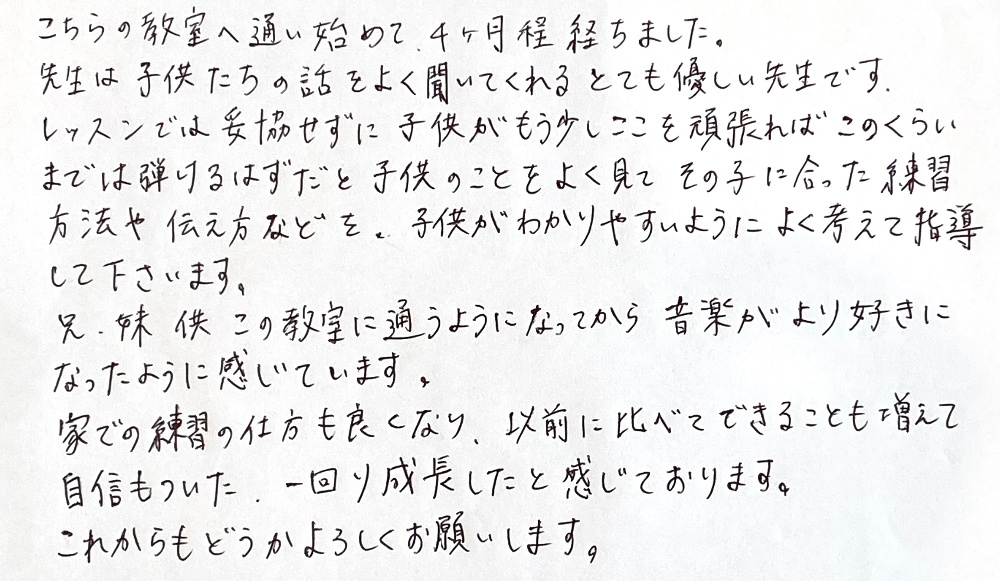 こちらの教室へ通い始めて、4ヶ月程経ちました。
先生は子供たちの話をよく聞いてくれるとても優しい先生です.
レッスンでは妥協せずに子供がもう少しここを頑張ればこのくらい
までは弾けるはずだと子供のことをよく見てその子に合った練習
方法や伝え方などを。子供がわかりやすいようによく考えて指導
して下さいます。
兄.妹供この教室に通うようになってから音楽がより好きに
なったように感じています。
家での練習の仕方も良くなり、以前に比べてできることも増えて
自信もついた.一回り成長したと感じております。
これからもどうかよろしくお願いします。